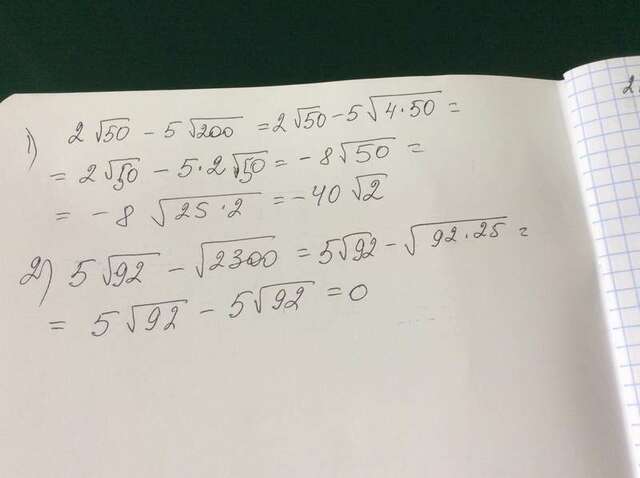 1) 2√50 − 5√200 = 2√50 − 5√4·50 =
= 2√50 − 5·2√50 = −8√50 =
= −8√25·2 = −40√2
2) 5√92 − √2300 = 5√92 − √92·25 =
= 5√92 − 5√92 = 0